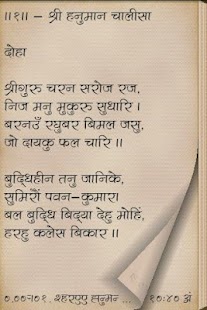 ॥१॥ – श्री हनुमान चालीसा
दोहा
श्रीगुरु चरन सरोज रज,
निज मनु मुकुरु सुधारि ।
बरनउँ रघुबर बिमल जसु,
जो दायकु फल चारि ॥
बुद्धिहीन तनु जानिके,
सुमिरौं पवन-कुमारा
बल बुद्धि बिद्या देहु मोहिं,
हरहु कलेस बिकार ॥
हनुमान ... १०:४० अं